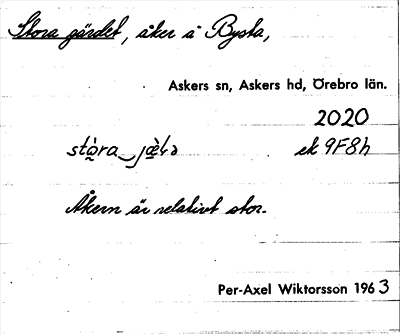 Stora gärdet, åker å Bysta,
Askers sn, Askers hd, Örebro län.
2020
ek 9F8h
Åkern är relativt stor.
Per-Axel Wiktorsson 1963